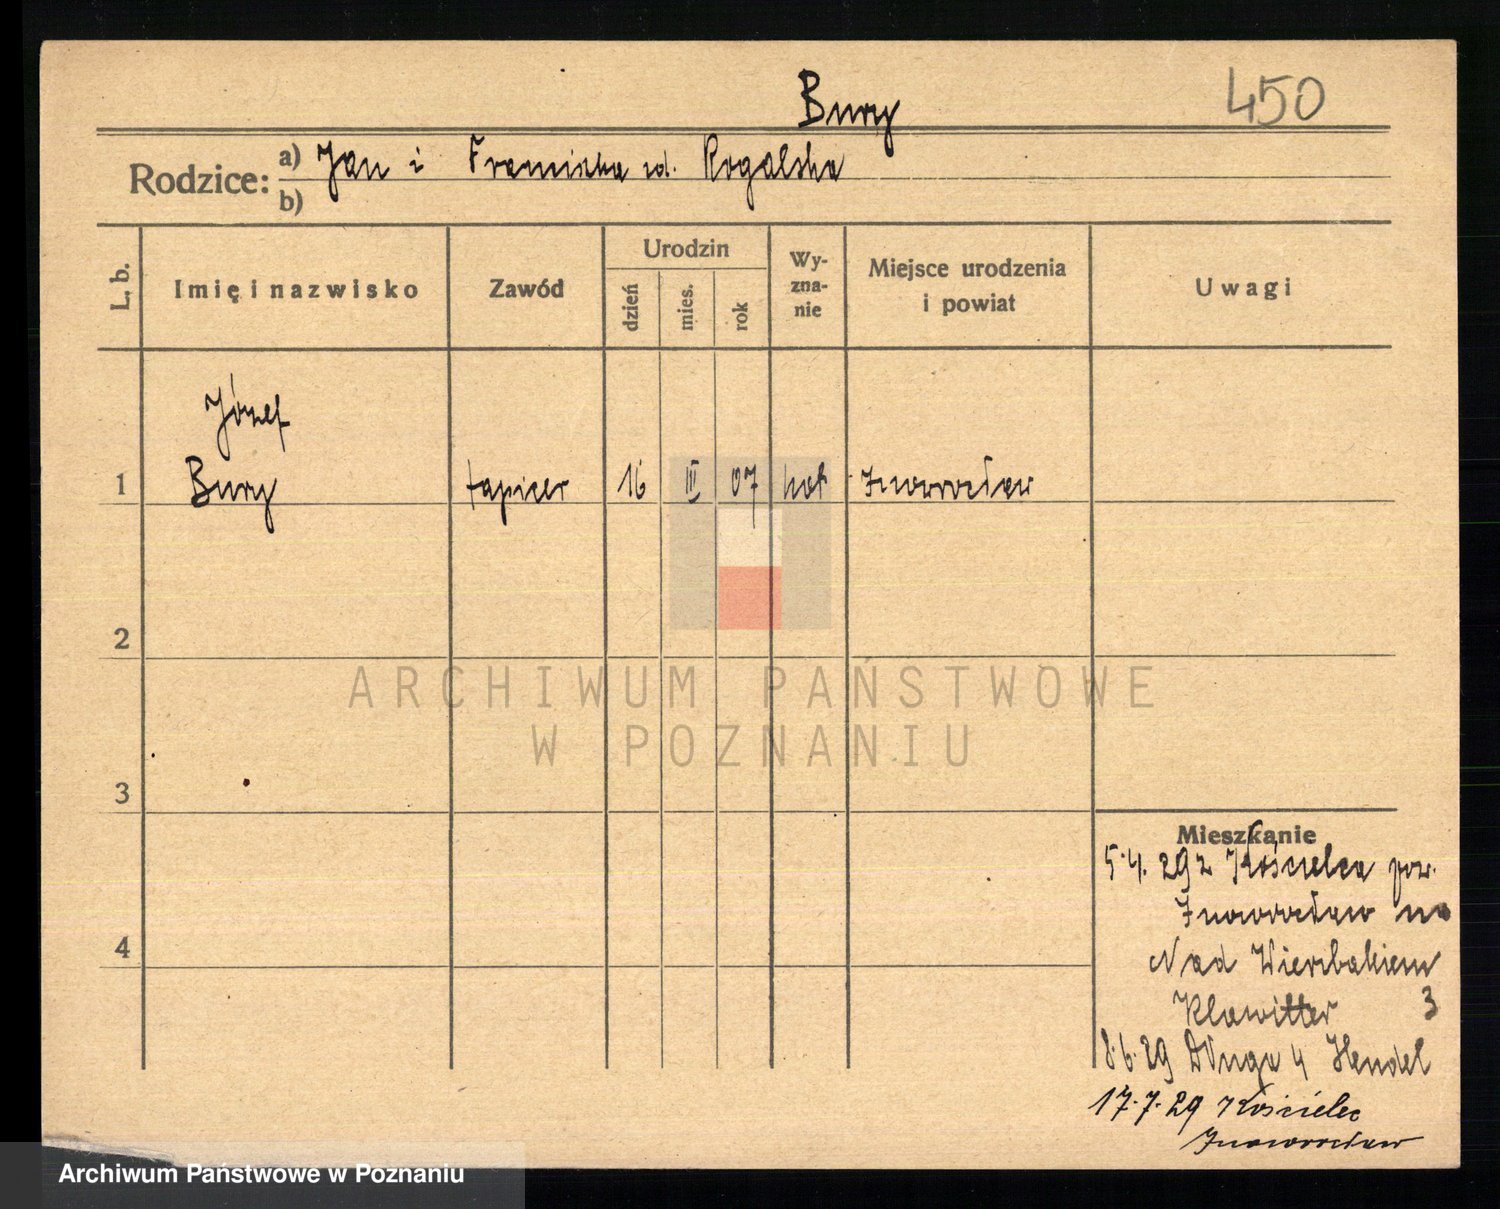 Bury
450
Rodzice:
a) Jan i Franciszka zd. Rogalska
b)
L. b.
Imię i nazwisko
Zawód
Urodzin
dzień
mies.
rok
Wy-
zna-
nie
Miejsce urodzenia
i powiat
Uwagi
Józef
1 Bury tapicer 16 III 07 kat Inowrocław
2
ARCHIWUM PAŃSTWOWE
W POZNANIU
3
4
Mieszkanie
5.4.29 z Kościelca pow.
Inowrocław na
Nad Wierzbakiem
Klawitter 3
8.6.29 Długa 4 Hendel
17.7.29 Kościelec
Inowrocław
Archiwum Państwowe w Poznaniu